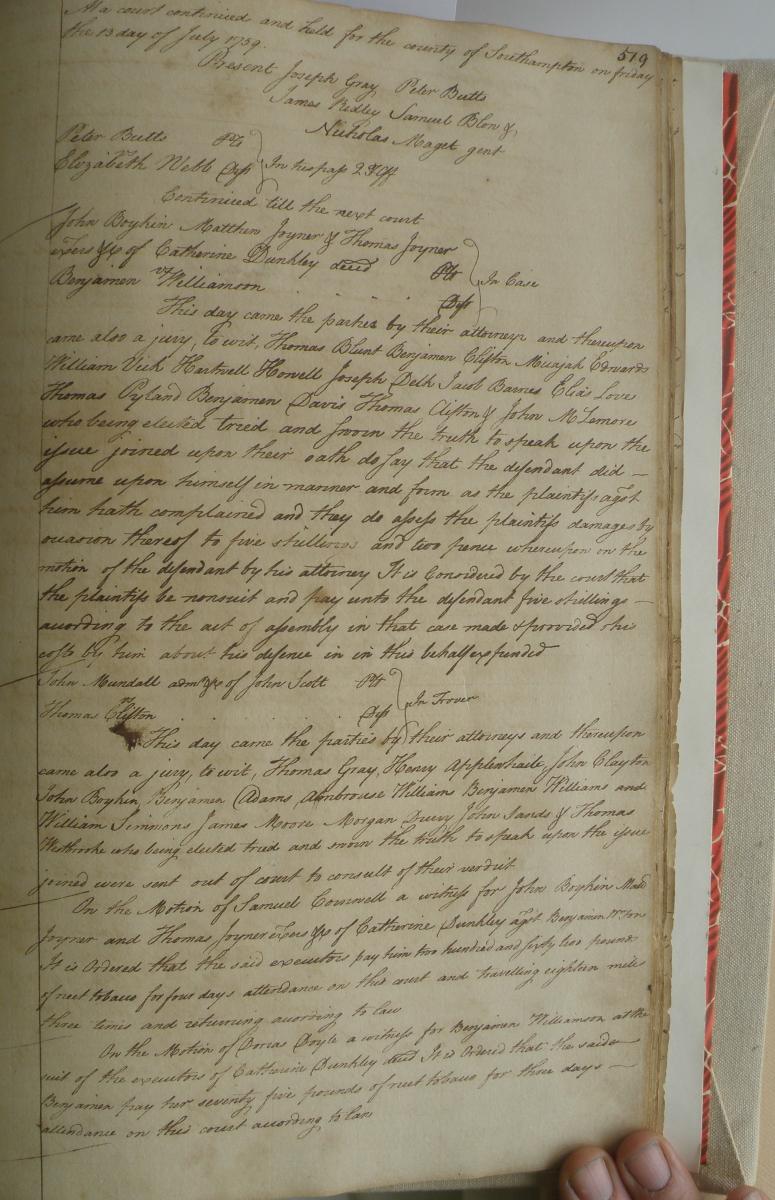 519
At a court continued and held for the county of Southampton on friday
the 13 day of July 1759.
Present Joseph Gray Peter Butts
James Ridley Samuel Blow &
Nicholas Maget gent
Peter Butts Plt
Elizabeth Webb Deft In trespass
Continued till the next court
John Boykin Matthew Joyner & Thomas Joyner
exers &c of Catherine Dunkley decd Plts
vs In Case
Benjamen Williamson Deft
This day came the parties by their attorneys and thereupon
came also a jury, to wit, Thomas Blunt Benjamen Clifton Micajah Edwards
William Vick Hartwell Howell Joseph Delk Jacob Barnes Elias Love
Thomas Pyland Benjamen Davis Thomas Clifton & John McLemore
who being elected tried and sworn the truth to speak upon the
issue joined upon their oath do say that the defendant did —
assume upon himself in manner and form as the plaintifs agst
him hath complained and they do assess the plaintifs damages by
occasion thereof to five shillings and two pence whereupon on the
motion of the defendant by his attorney It is Considered by the court that
the plaintifs be nonsuit and pay unto the defendant five shillings —
according to the act of assembly in that case made & provided & his
costs by him about his defence in in this behalf expended
John Mundall admr &c of John Scott Plt
vs In Trover
Thomas Clifton Deft
This day came the parties by their attorneys and thereupon
came also a jury, to wit, Thomas Gray, Henry Applewhaite, John Clayton
John Boykin, Benjamen Adams, Ambrouse William Benjamen Williams and
William Simmons James Moore Morgan Duery John Sands & Thomas
Westbrooke who being elected tried and sworn the truth to speak upon the issue
joined were sent out of court to consult of their verdict
On the Motion of Samuel Cornwell a witness for John Boykin Matt
Joyner and Thomas Joyner exers &c of Catherine Dunkley agst Benjamen Wmson
It is Ordered that the said executors pay him two hundred and sixty two pounds
of neet tobacco for four days attendance on this court and travelling eighteen miles
three times and returning according to law
On the Motion of Dorcas Doyle a witness for Benjamen Williamson at the
suit of the executors of Catherine Dunkley decd It is Ordered that the said
Benjamen pay her seventy five pounds of neet tobacco for three days —
attendance on this court according to law